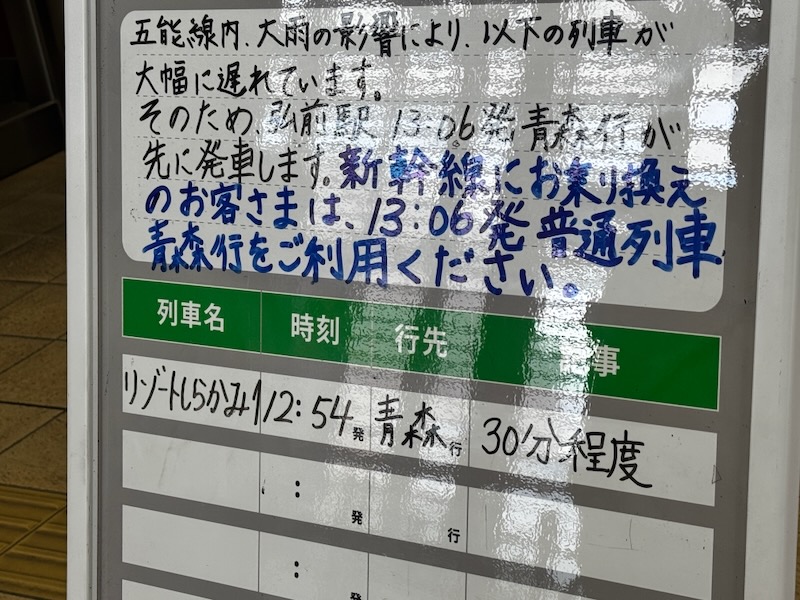 五能線内、大雨の影響により、以下の列車が
大幅に遅れています。
そのため、弘前駅 13:06発 青森行が
先に発車します。新幹線にお乗り換え
のお客さまは、13:06発 普通列車
青森行をご利用ください。
列車名 時刻 行先 記事
リゾートしらかみ1 12:54発 青森行 30分程度
: 発 行
: 発